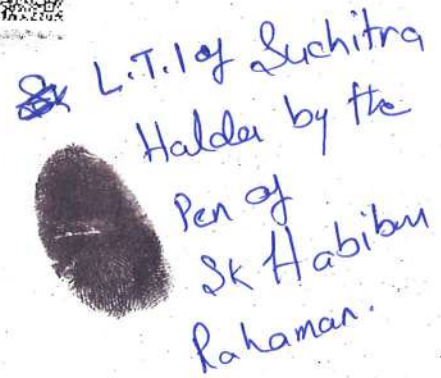 L.T.I of Suchitra
Halder by the
Pen of
Sk Habibur
Rahaman.